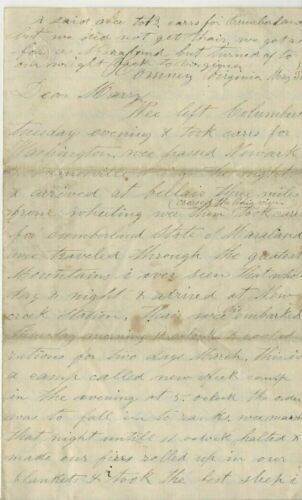 i said wee tok carrs for Cumberland
but we did not get thair, we got as
far as Maraland but turned of to
our wright back to Virginia
Romney Virginia May
Dear Marry
Wee left Columbus
tuesday evening & took carrs for
Washington, wee passed Newark
& Zanesville during the night
& arrived at bellair three mile
crossed the Ohio river
frome wheeling wee then took cars
for Cumberland State of Maraland
wee traveled through the greatest
Mountains i ever seen that whole
day & night & arrived at New
creek Station. thair wee embarked
thursday morning & cooked
rations for two days March, this is
a camp called new creek camp
in the evening at 5 oclock the order
was to fall in to ranks, wee marched
that night untill 11 oclock halted &
made our fiers rolled up in our
blankets & took the best sleep i